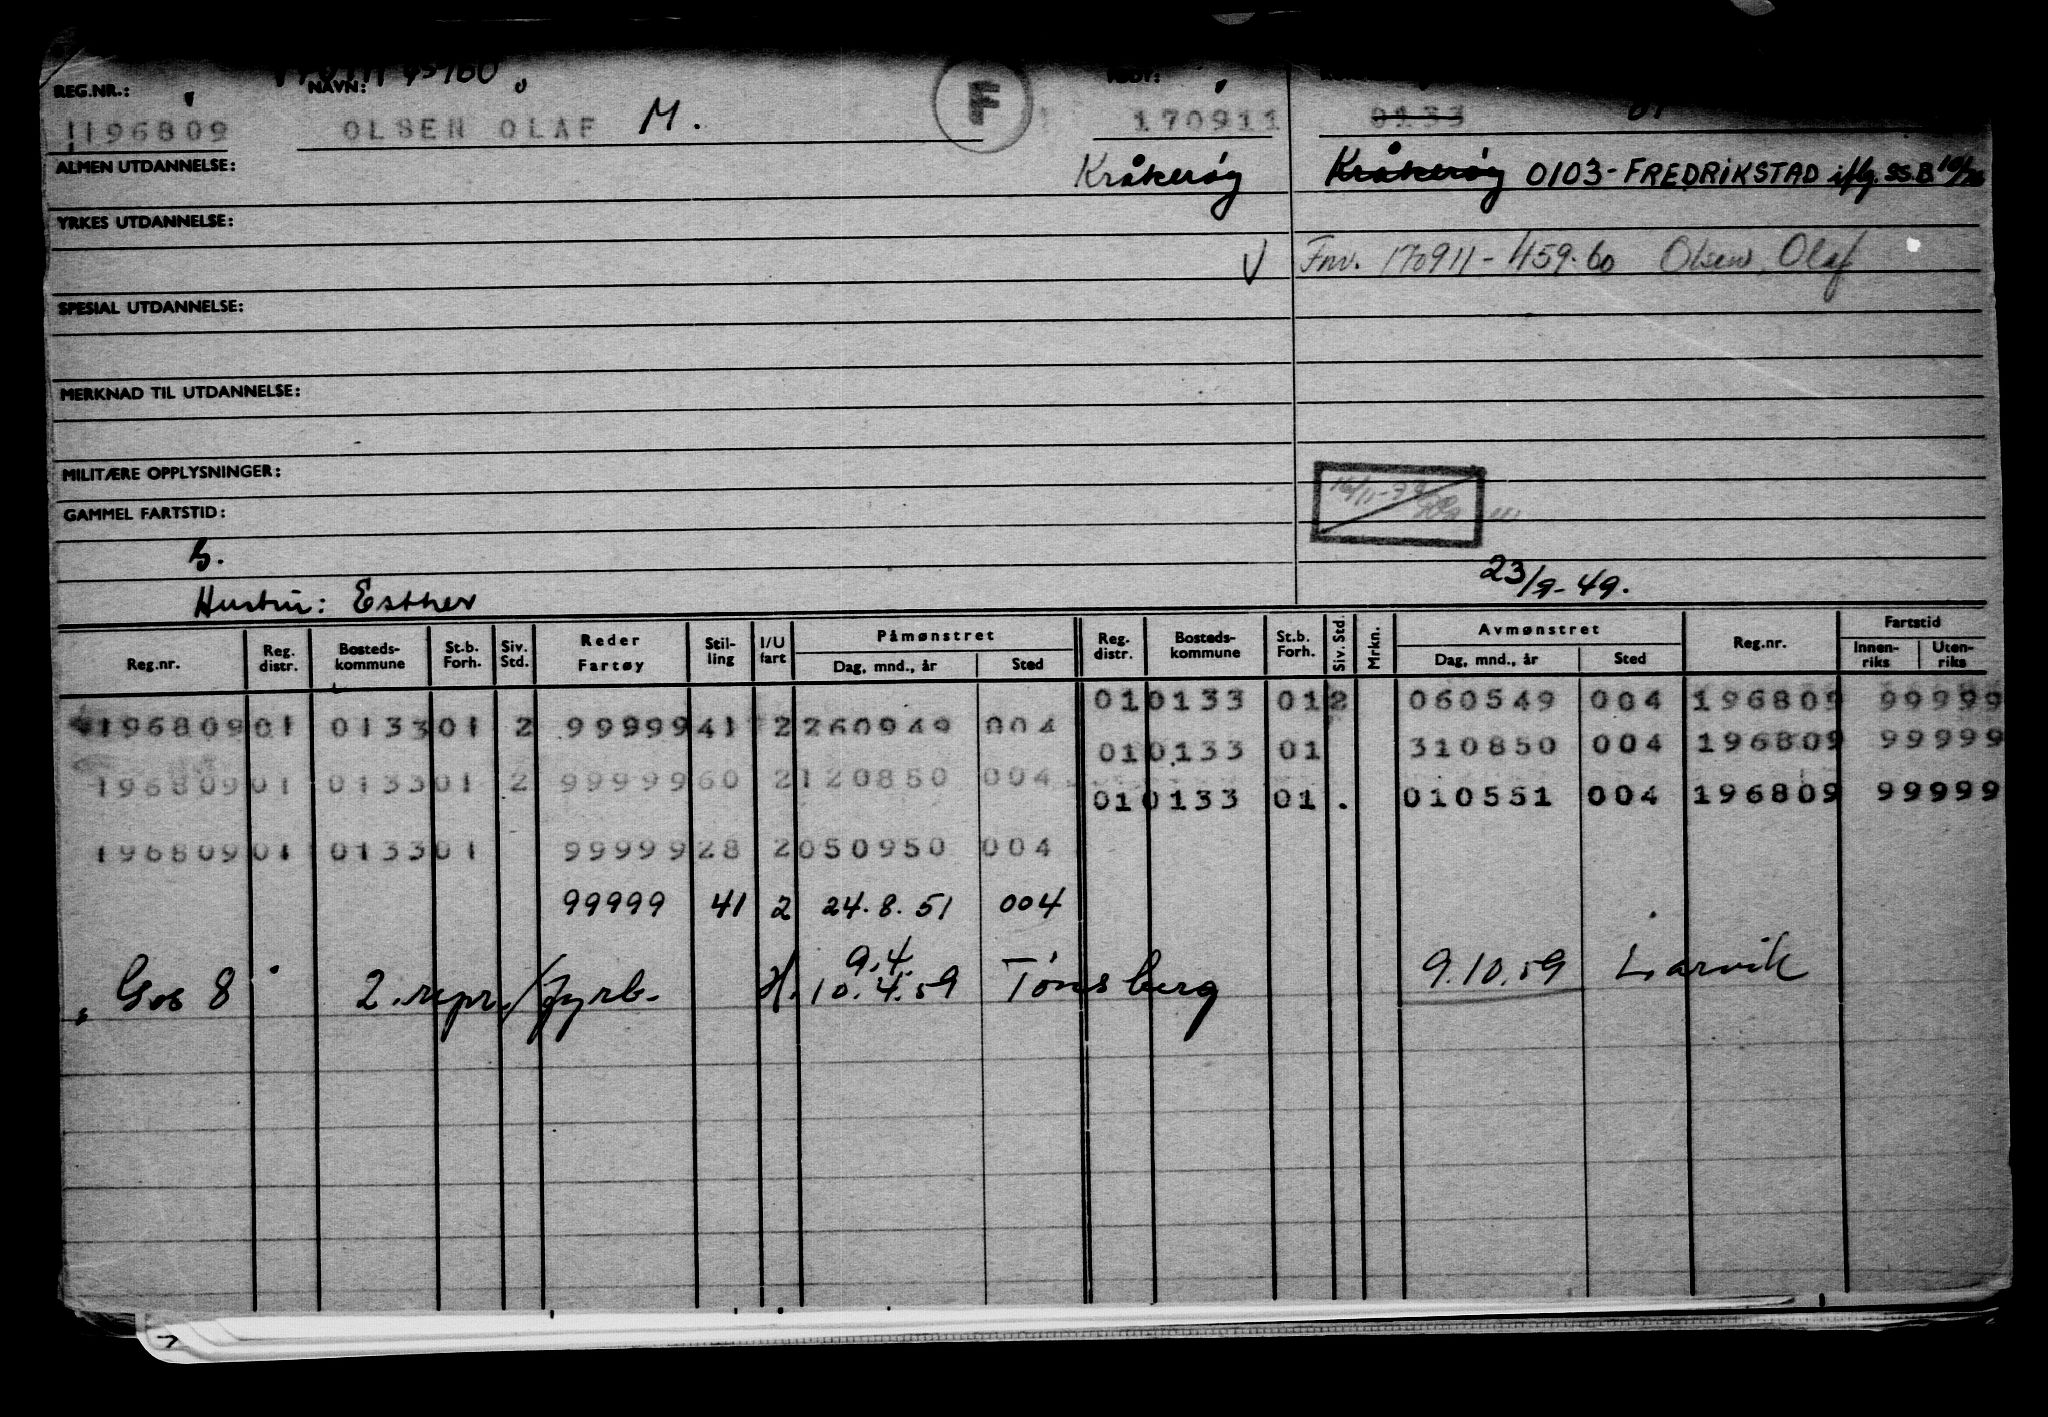 REG.NR.: NAVN:
196809 OLSEN OLAF M. F 170911 0133
ALMEN UTDANNELSE: Kråkerøy Kråkerøy 0103-FREDRIKSTAD iflg. SS.B
YRKES UTDANNELSE:
V Fnr. 170911-459.60 Olsen, Olaf
SPESIAL UTDANNELSE:
MERKNAD TIL UTDANNELSE:
MILITÆRE OPPLYSNINGER:
GAMMEL FARTSTID:
23/9-49.
Hustru: Esther
Reg.nr. Reg. distr. Bosteds-kommune St.b. Forh. Siv. Std. Reder Fartøy Stil-ling I/U fart Påmønstret Dag, mnd., år Sted Reg. distr. Bosteds-kommune St.b. Forh. Siv. Std. Mrkn. Avmønstret Dag, mnd., år Sted Reg.nr. Fartstid Innen-riks Uten-riks
01 0133 01 2 060549 004 196809 99999
196809 01 0133 01 2 99999 41 2 260949 004
01 0133 01 310850 004 196809 99999
196809 01 0133 01 2 99999 60 2 120850 004
01 0133 01 . 010551 004 196809 99999
196809 01 0133 01 99999 28 2 050950 004
99999 41 2 24.8.51 004
9.4.
"Gos 8" 2. repr./fyrb. H. 10.4.59 Tønsberg 9.10.59 Larvik
7